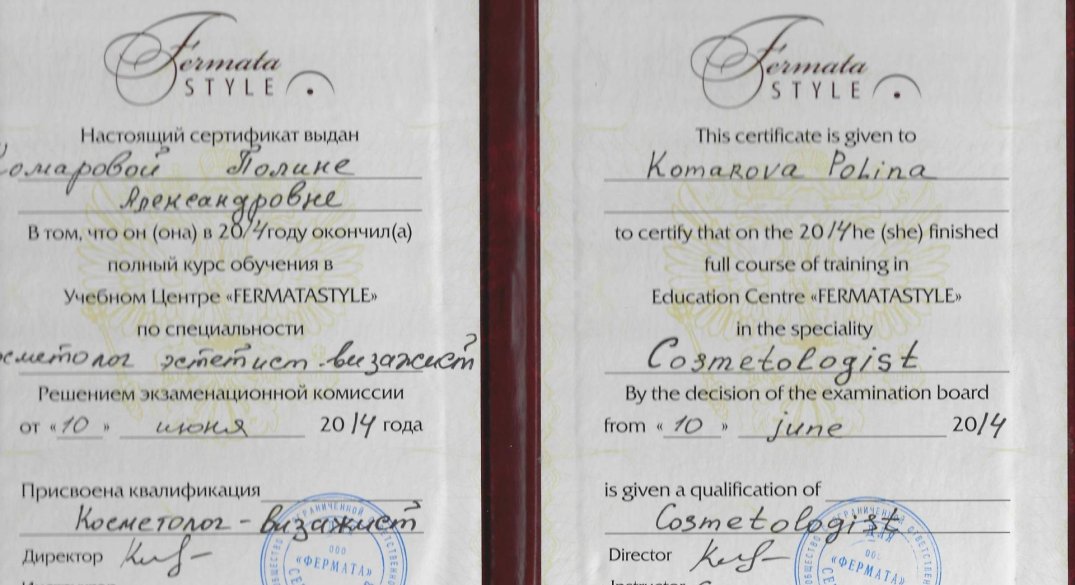 Fermata
STYLE
Настоящий сертификат выдан
омаровой Полине
Александровне
В том, что он (она) в 2014 году окончил(а)
полный курс обучения в
Учебном Центре «FERMATASTYLE»
по специальности
сметолог эстетист-визажист
Решением экзаменационной комиссии
от «10» июня 2014 года
Присвоена квалификация
Косметолог - визажист
Директор
ООО
«ФЕРМАТА»
Fermata
STYLE
This certificate is given to
Komarova Polina
to certify that on the 2014 he (she) finished
full course of training in
Education Centre «FERMATASTYLE»
in the speciality
Cosmetologist
By the decision of the examination board
from «10» june 2014
is given a qualification of
Cosmetologist
Director
«ФЕРМАТА»